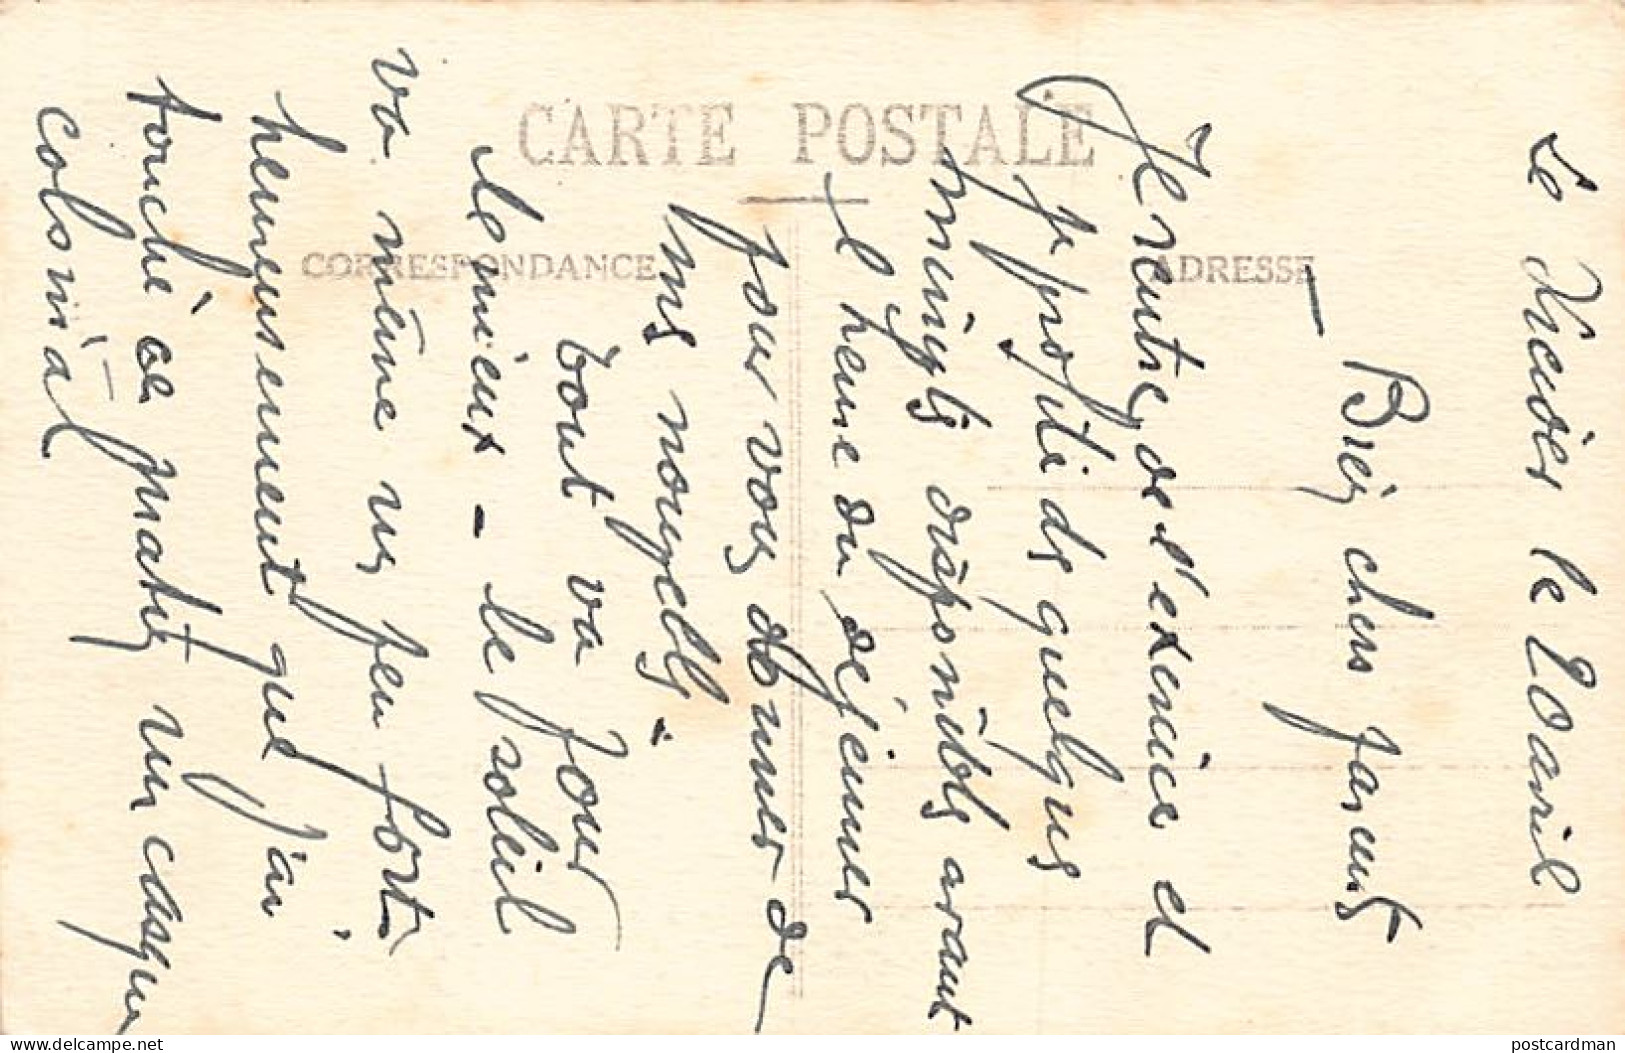 CARTE POSTALE
CORRESPONDANCE
ADRESSE
Le 20 avril
Bien chers parents
Je rentre de l'exercice et
je profite de quelques
minutes disponibles avant
l'heure du déjeuner
pour vous donner de
mes nouvelles -
Tout va pour
le mieux - le soleil
va même un peu fort
heureusement que j'ai
touché ce matin un casque
colonial
postcardman